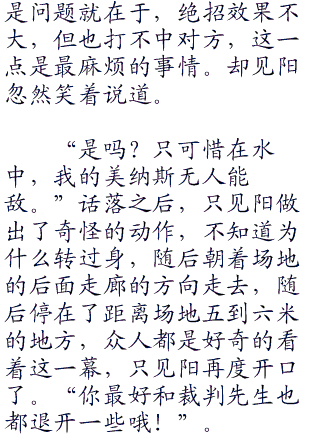 是问题就在于，绝招效果不
大，但也打不中对方，这一
点是最麻烦的事情。却见阳
忽然笑着说道。
“是吗？只可惜在水
中，我的美纳斯无人能
敌。”话落之后，只见阳做
出了奇怪的动作，不知道为
什么转过身，随后朝着场地
的后面走廊的方向走去，随
后停在了距离场地五到六米
的地方，众人都是好奇的看
着这一幕，只见阳再度开口
了。“你最好和裁判先生也
都退开一些哦！”。